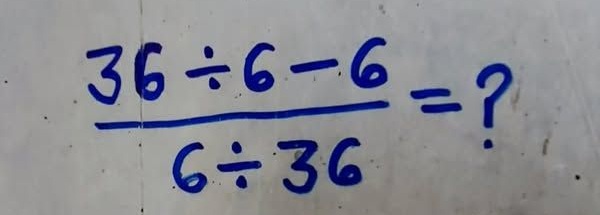 36 ÷ 6 − 6
6 ÷ 36
= ?